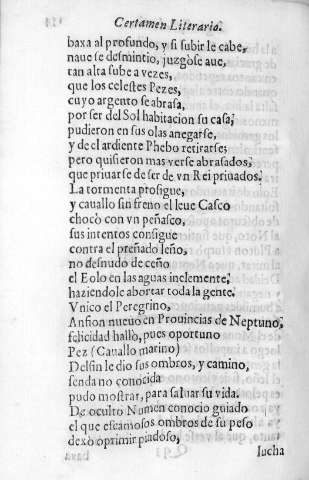 Certamen Literario.
baxa al profundo, y si subir le cabe,
naue se desmintio, juzgòse aue,
tan alta sube a vezes,
que los celestes Pezes,
cuyo argento se abrasa,
por ser del Sol habitacion su casa,
pudieron en sus olas anegarse,
y de el ardiente Phebo retirarse;
pero quisieron mas verse abrasados,
que priuarse de ser de vn Rei priuados.
La tormenta prosigue,
y cauallo sin freno el leue Casco
chocò con vn peñasco,
sus intentos consigue
contra el preñado leño,
no desnudo de ceño
el Eolo en las aguas inclemente,
haziendole abortar toda la gente.
Vnico el Peregrino,
Anfion nueuo en Prouincias de Neptuno,
felicidad hallò, pues oportuno
Pez (Cauallo marino)
Delfin le dio sus ombros, y camino,
senda no conocida
pudo mostrar, para saluar su vida.
De oculto Numen conocio guiado
el que escamosos ombros de su peso
dexò oprimir piadoso,
lucha